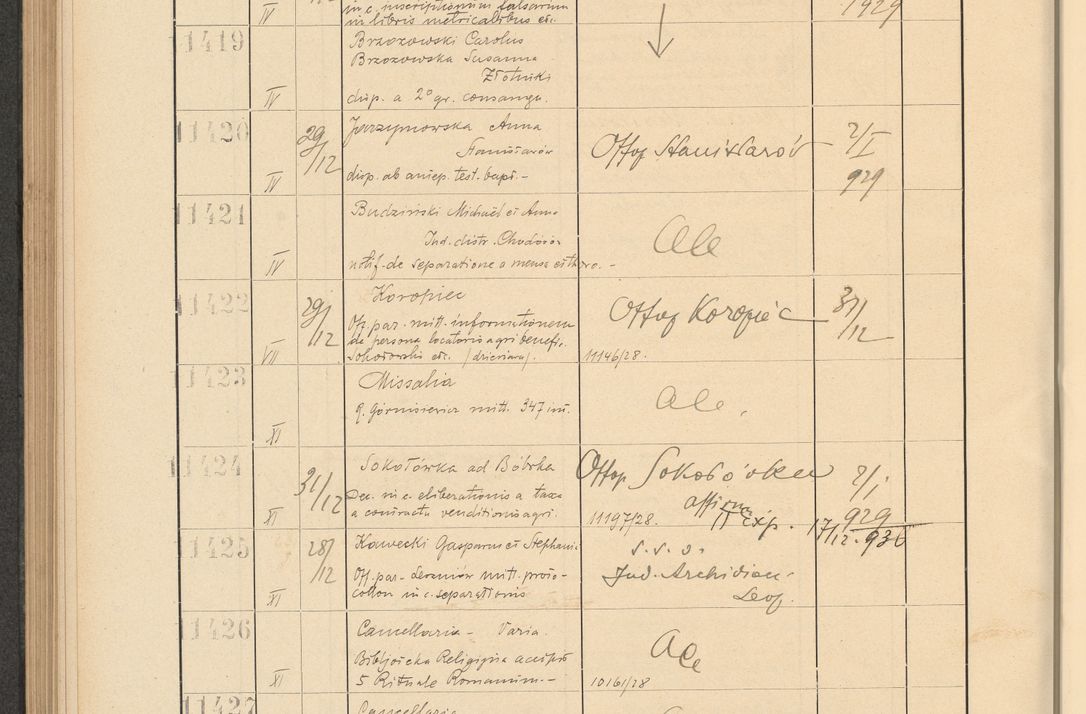 IV in c. inscriptionum falsarum 1929
in libris metricalibus etc.
11419
Brzozowski Carolus
Brzozowska Susanna
Złotniki
IV disp. a 2° gr. consangu.
11420 29/12 Jarzymowska Anna
Stanisławów
Ottop Stanisławów 2/I 929
IV disp. ab aniep. test. bapt. -
11421 Budziński Michaël et Anna
Jud. distr. Chodorów
Ale
IV notif. de separatione a mensa et thoro. -
11422 29/12 Koropiec
Off. par. mitt. informationem
de persona locatoris agri benefi.
Ottop Koropiec 31/12
VII Sokołowski etc. (dzierżawa). 11146/28.
11423 Missalia
q. mitt. 347 int.
Ale.
XI
11424 31/12 Sokołówka ad Bóbrka
Dec. in c. eliberationis a taxa
XI a contractu venditionis agri.
Ottop Sokołówka 2/I 929
11197/28. Exp. 17/12. 930
11425 28/12 Kawecki Gasparus et Stephania
Off. par. mitt. proto-
XI collon in c. separationis
s. s. o.
Jud. Archidioec.
Leop.
11426 Cancellaria - Varia.
Bibljoteka Religijna
XI 5 Rituale Romanum. -
Ale
10161/28
11427 Cancellaria